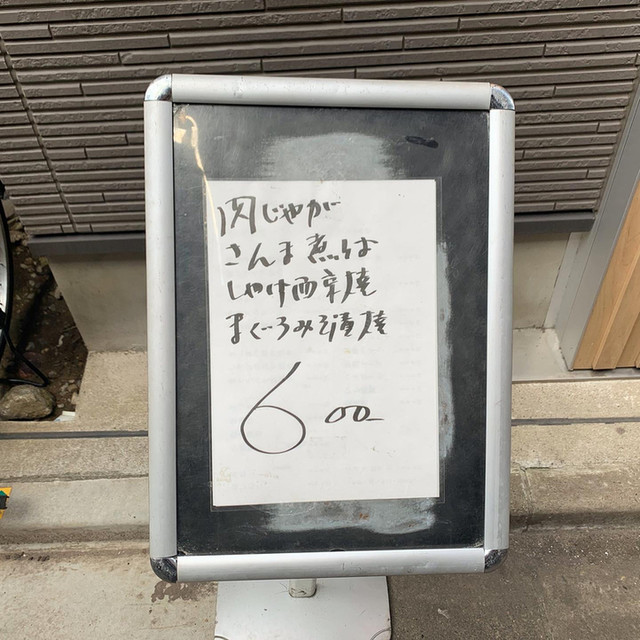 肉じゃが
さんま煮付
しゃけ西京焼
まぐろみそ漬焼
600-